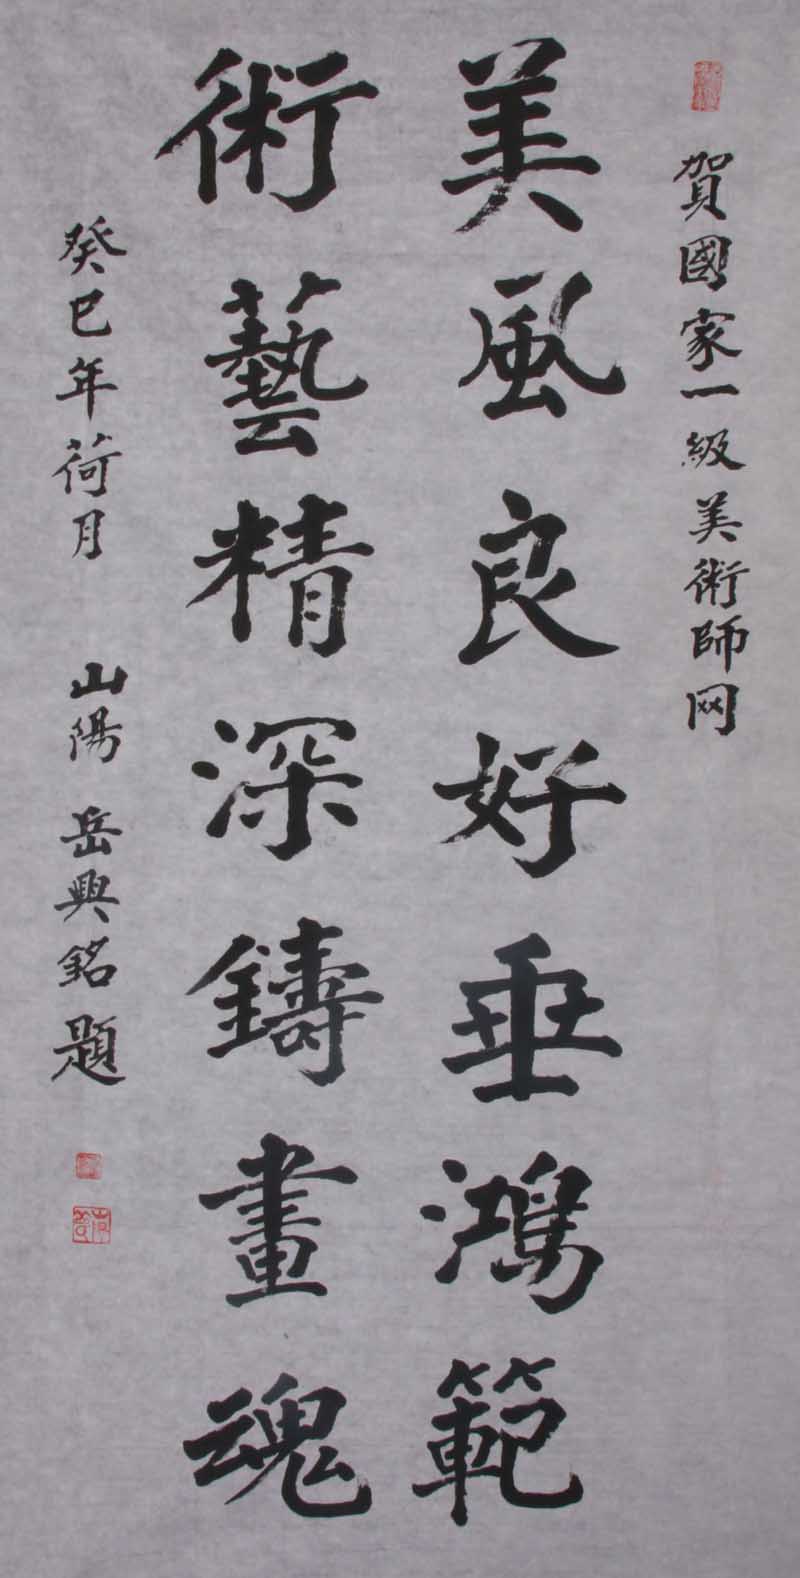 賀國家一級美術師网
美風良好垂鴻範
術藝精深鑄畫魂
癸巳年荷月 山陽 岳興銘題